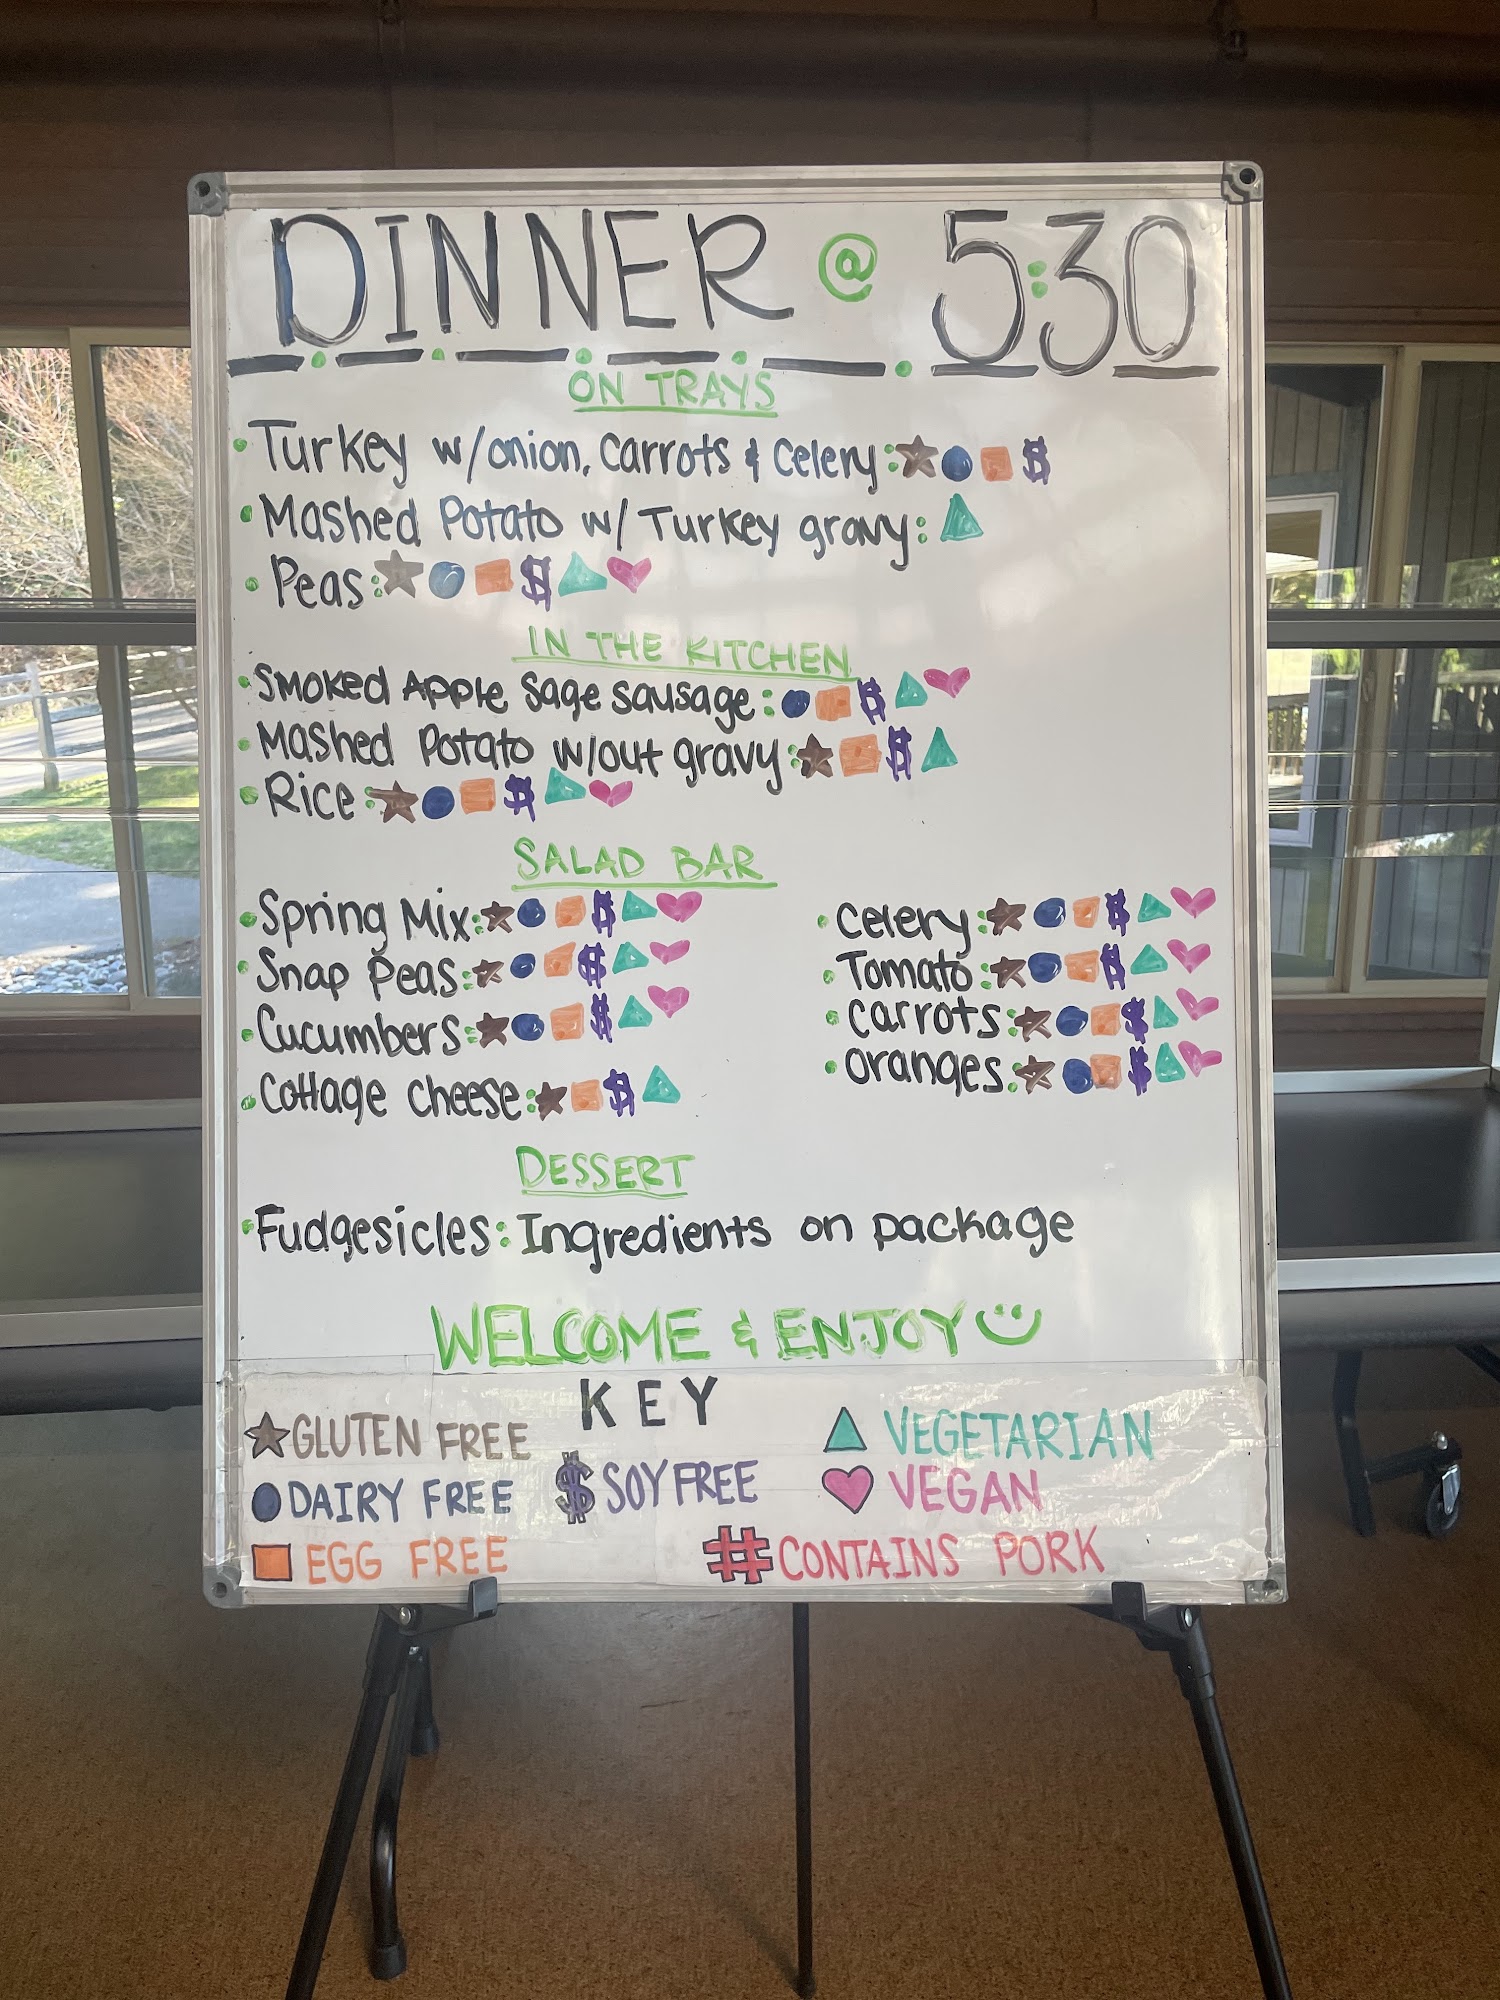 DINNER @ 5:30
ON TRAYS
• Turkey w/onion, carrots & celery:
• Mashed Potato w/ Turkey gravy:
• Peas:
IN THE KITCHEN
• Smoked Apple Sage sausage:
• Mashed Potato w/out gravy:
• Rice:
SALAD BAR
• Spring Mix:
• Snap Peas:
• Cucumbers:
• Cottage cheese:
• celery:
• Tomato:
• carrots:
• oranges:
DESSERT
• Fudgesicles: Ingredients on package
WELCOME & ENJOY
KEY
GLUTEN FREE
DAIRY FREE
EGG FREE
$ SOY FREE
VEGETARIAN
VEGAN
# CONTAINS PORK